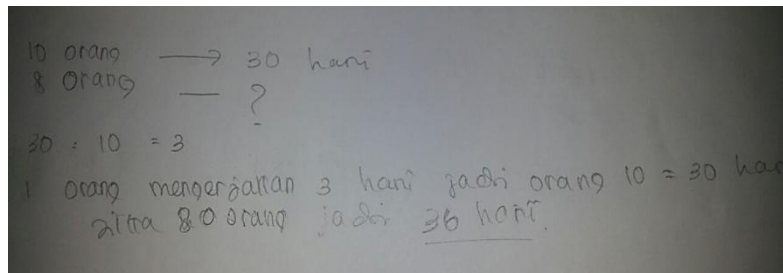 10 orang → 30 hari
8 orang — ?
30 : 10 = 3
1 orang mengerjakan 3 hari jadi orang 10 = 30 har
jika 80 orang jadi 36 hari.